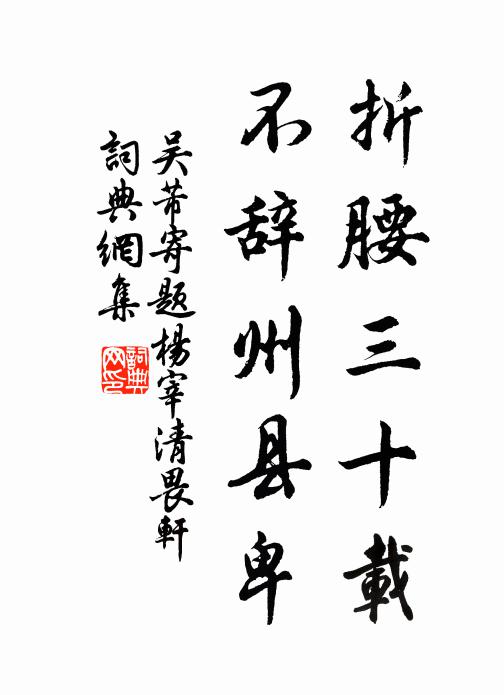 折腰三十載
不辞州县卑
吴芾寄题楊宰清畏軒
詞典網集
詞典网印